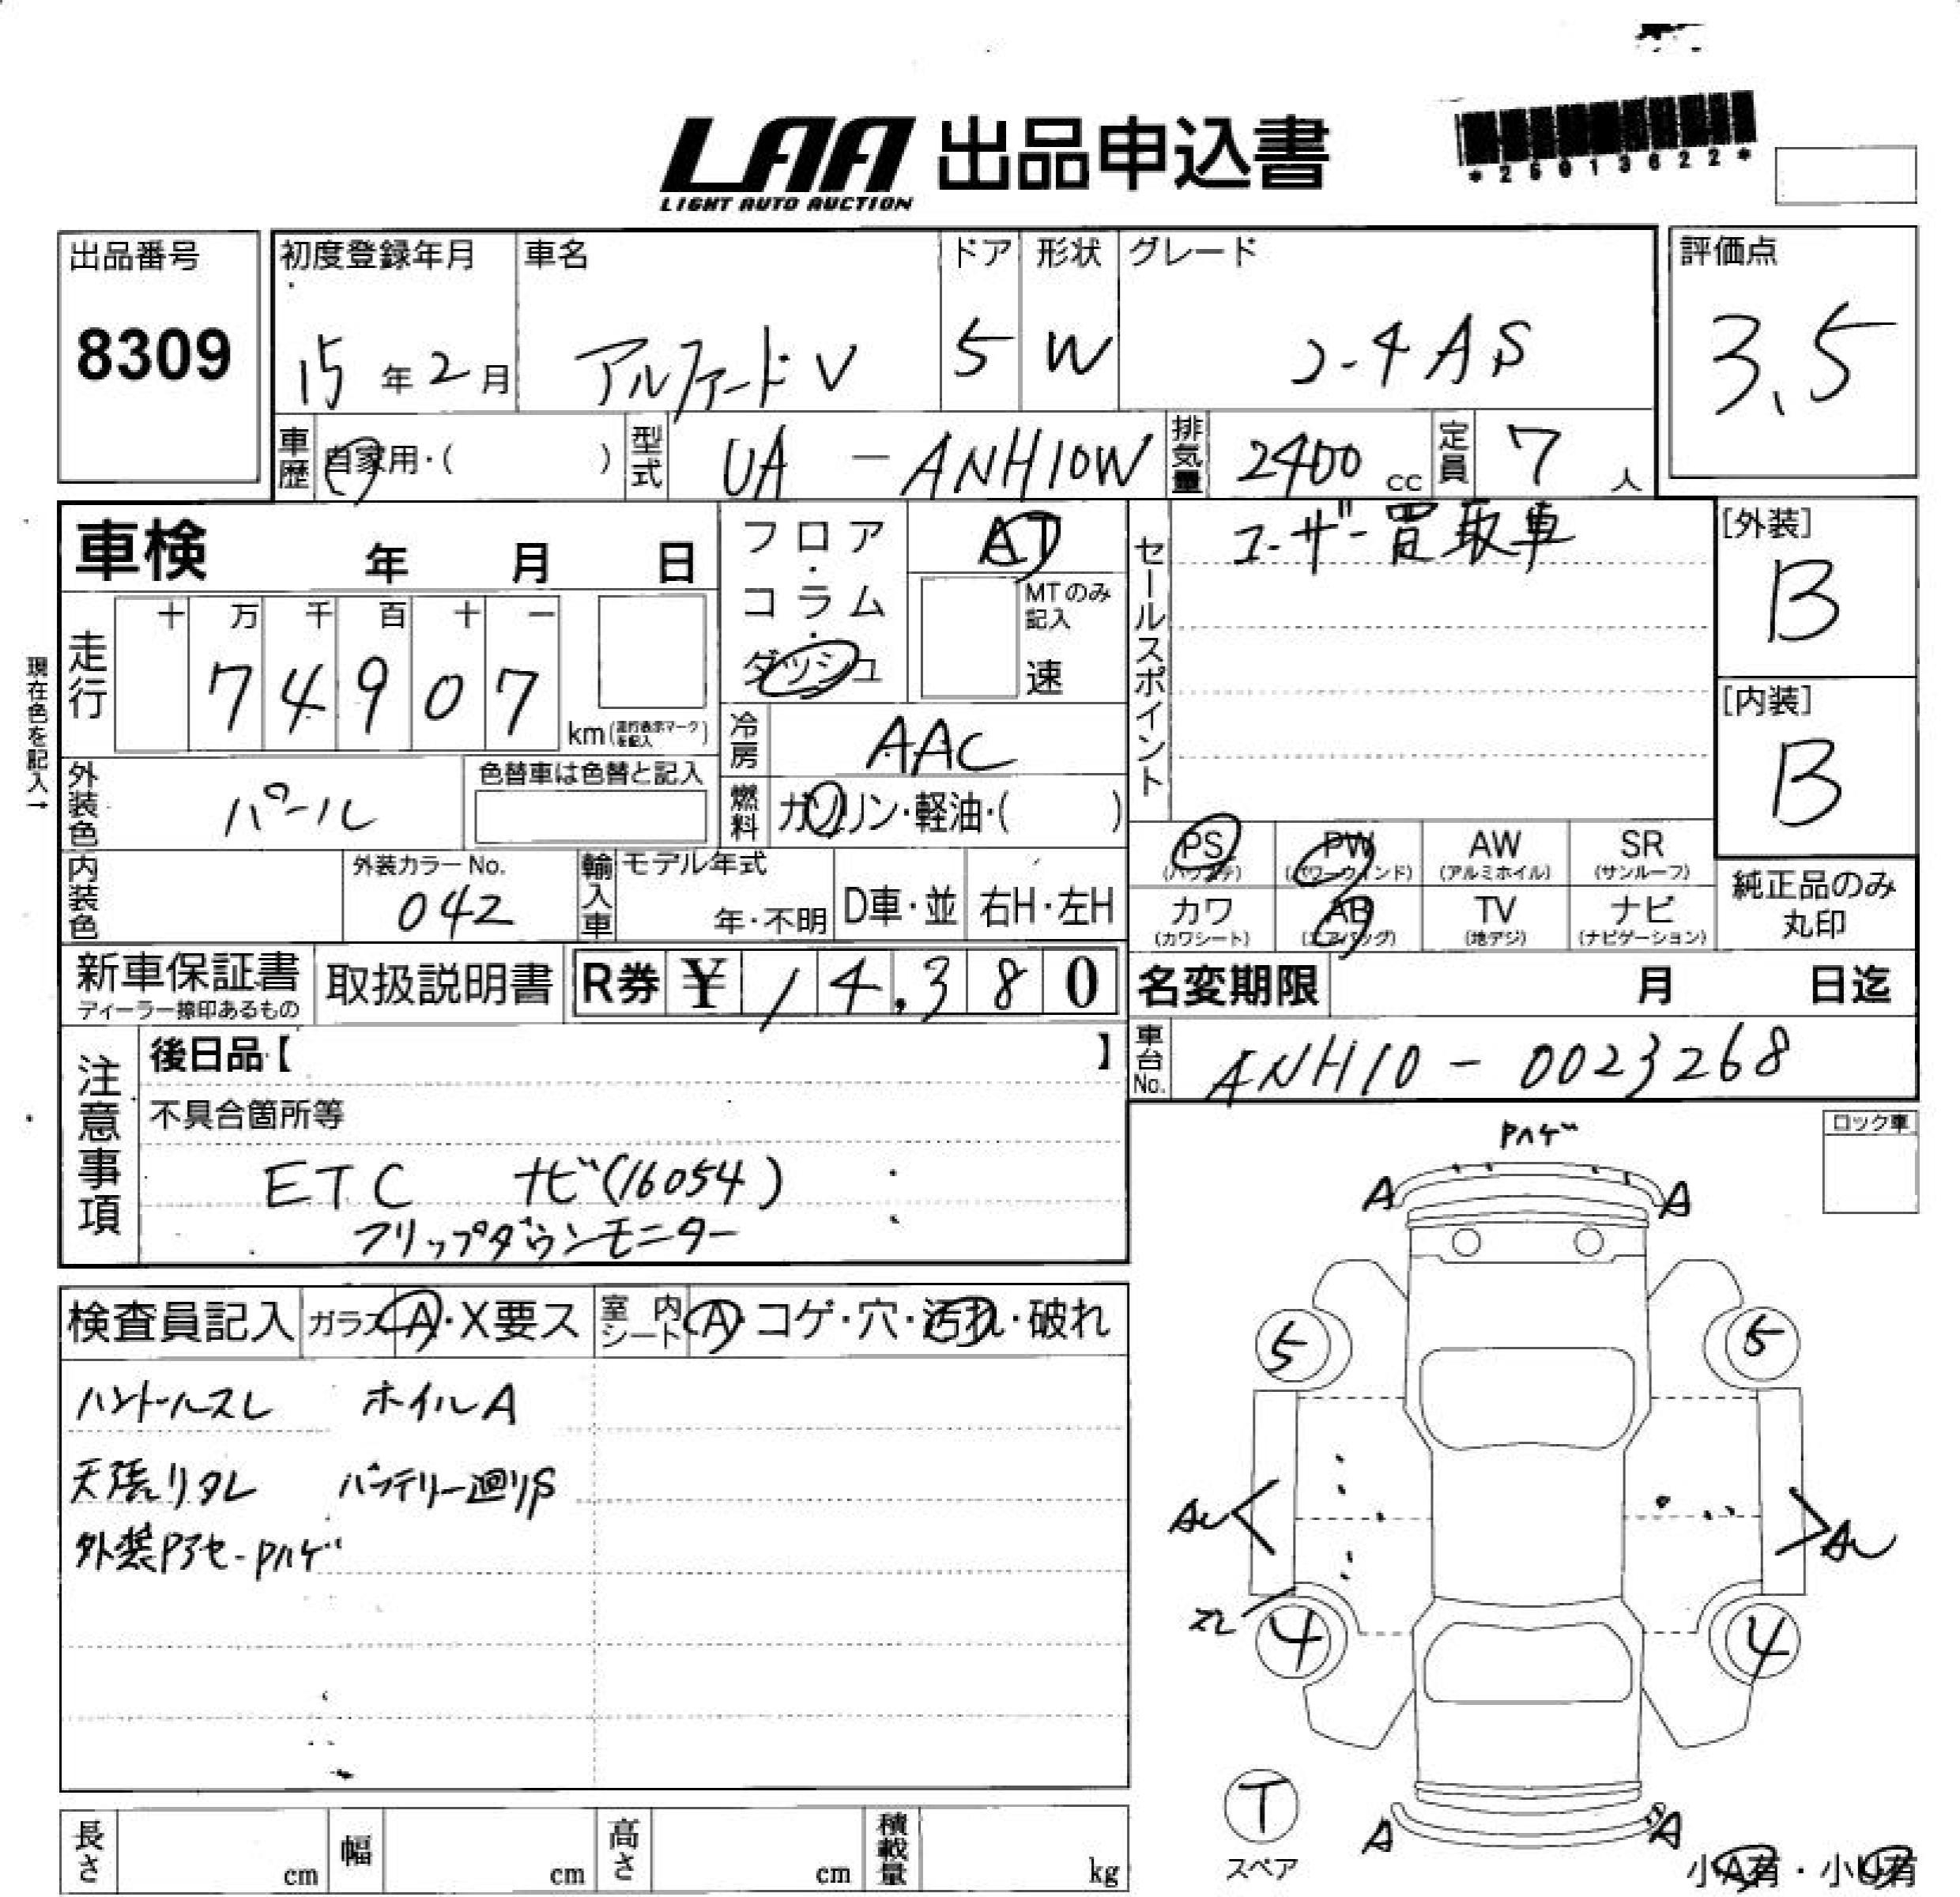 LAA 出品申込書
LIGHT AUTO AUCTION
出品番号
8309
初度登録年月
15年2月
車名
アルファードV
ドア
5
形状
W
グレード
2.4AS
評価点
3.5
車歴
自家用・(　)
型式
UA - ANH10W
排気量
2400cc
定員
7人
車検 年 月 日
フロア・コラム・ダッシュ
AT
MTのみ記入
速
セールスポイント
ユーザー買取車
[外装]
B
[内装]
B
現在色を記入→
走行
十 万 千 百 十 一
7 4 9 0 7
km
冷房
AAC
外装色
パール
色替車は色替と記入
燃料
ガソリン・軽油・(　)
内装色
外装カラーNo.
042
輸入車
モデル年式
年・不明
D車・並
右H・左H
PS
PW
AW
SR
(パワステ)
(パワーウインド)
(アルミホイル)
(サンルーフ)
カワ
AB
TV
ナビ
(カワシート)
(エアバッグ)
(地デジ)
(ナビゲーション)
純正品のみ
丸印
新車保証書
ディーラー捺印あるもの
取扱説明書
R券 ¥ 14,380
名変期限 月 日迄
車台No.
ANH10 - 0023268
注意事項
後日品【　】
不具合箇所等
ETC ナビ(16054)
フリップダウンモニター
ロック車
Pハゲ
A A
検査員記入
ガラス A・X要ス
室内シート A・コゲ・穴・汚れ・破れ
ハンドルスレ ホイルA
天張リタレ バッテリー廻りS
外装Pアセ-Pハゲ
5 5
AU AU
スレ
4 4
T
スペア
A A
小A有・小U有
長さ cm
幅 cm
高さ cm
積載量 kg